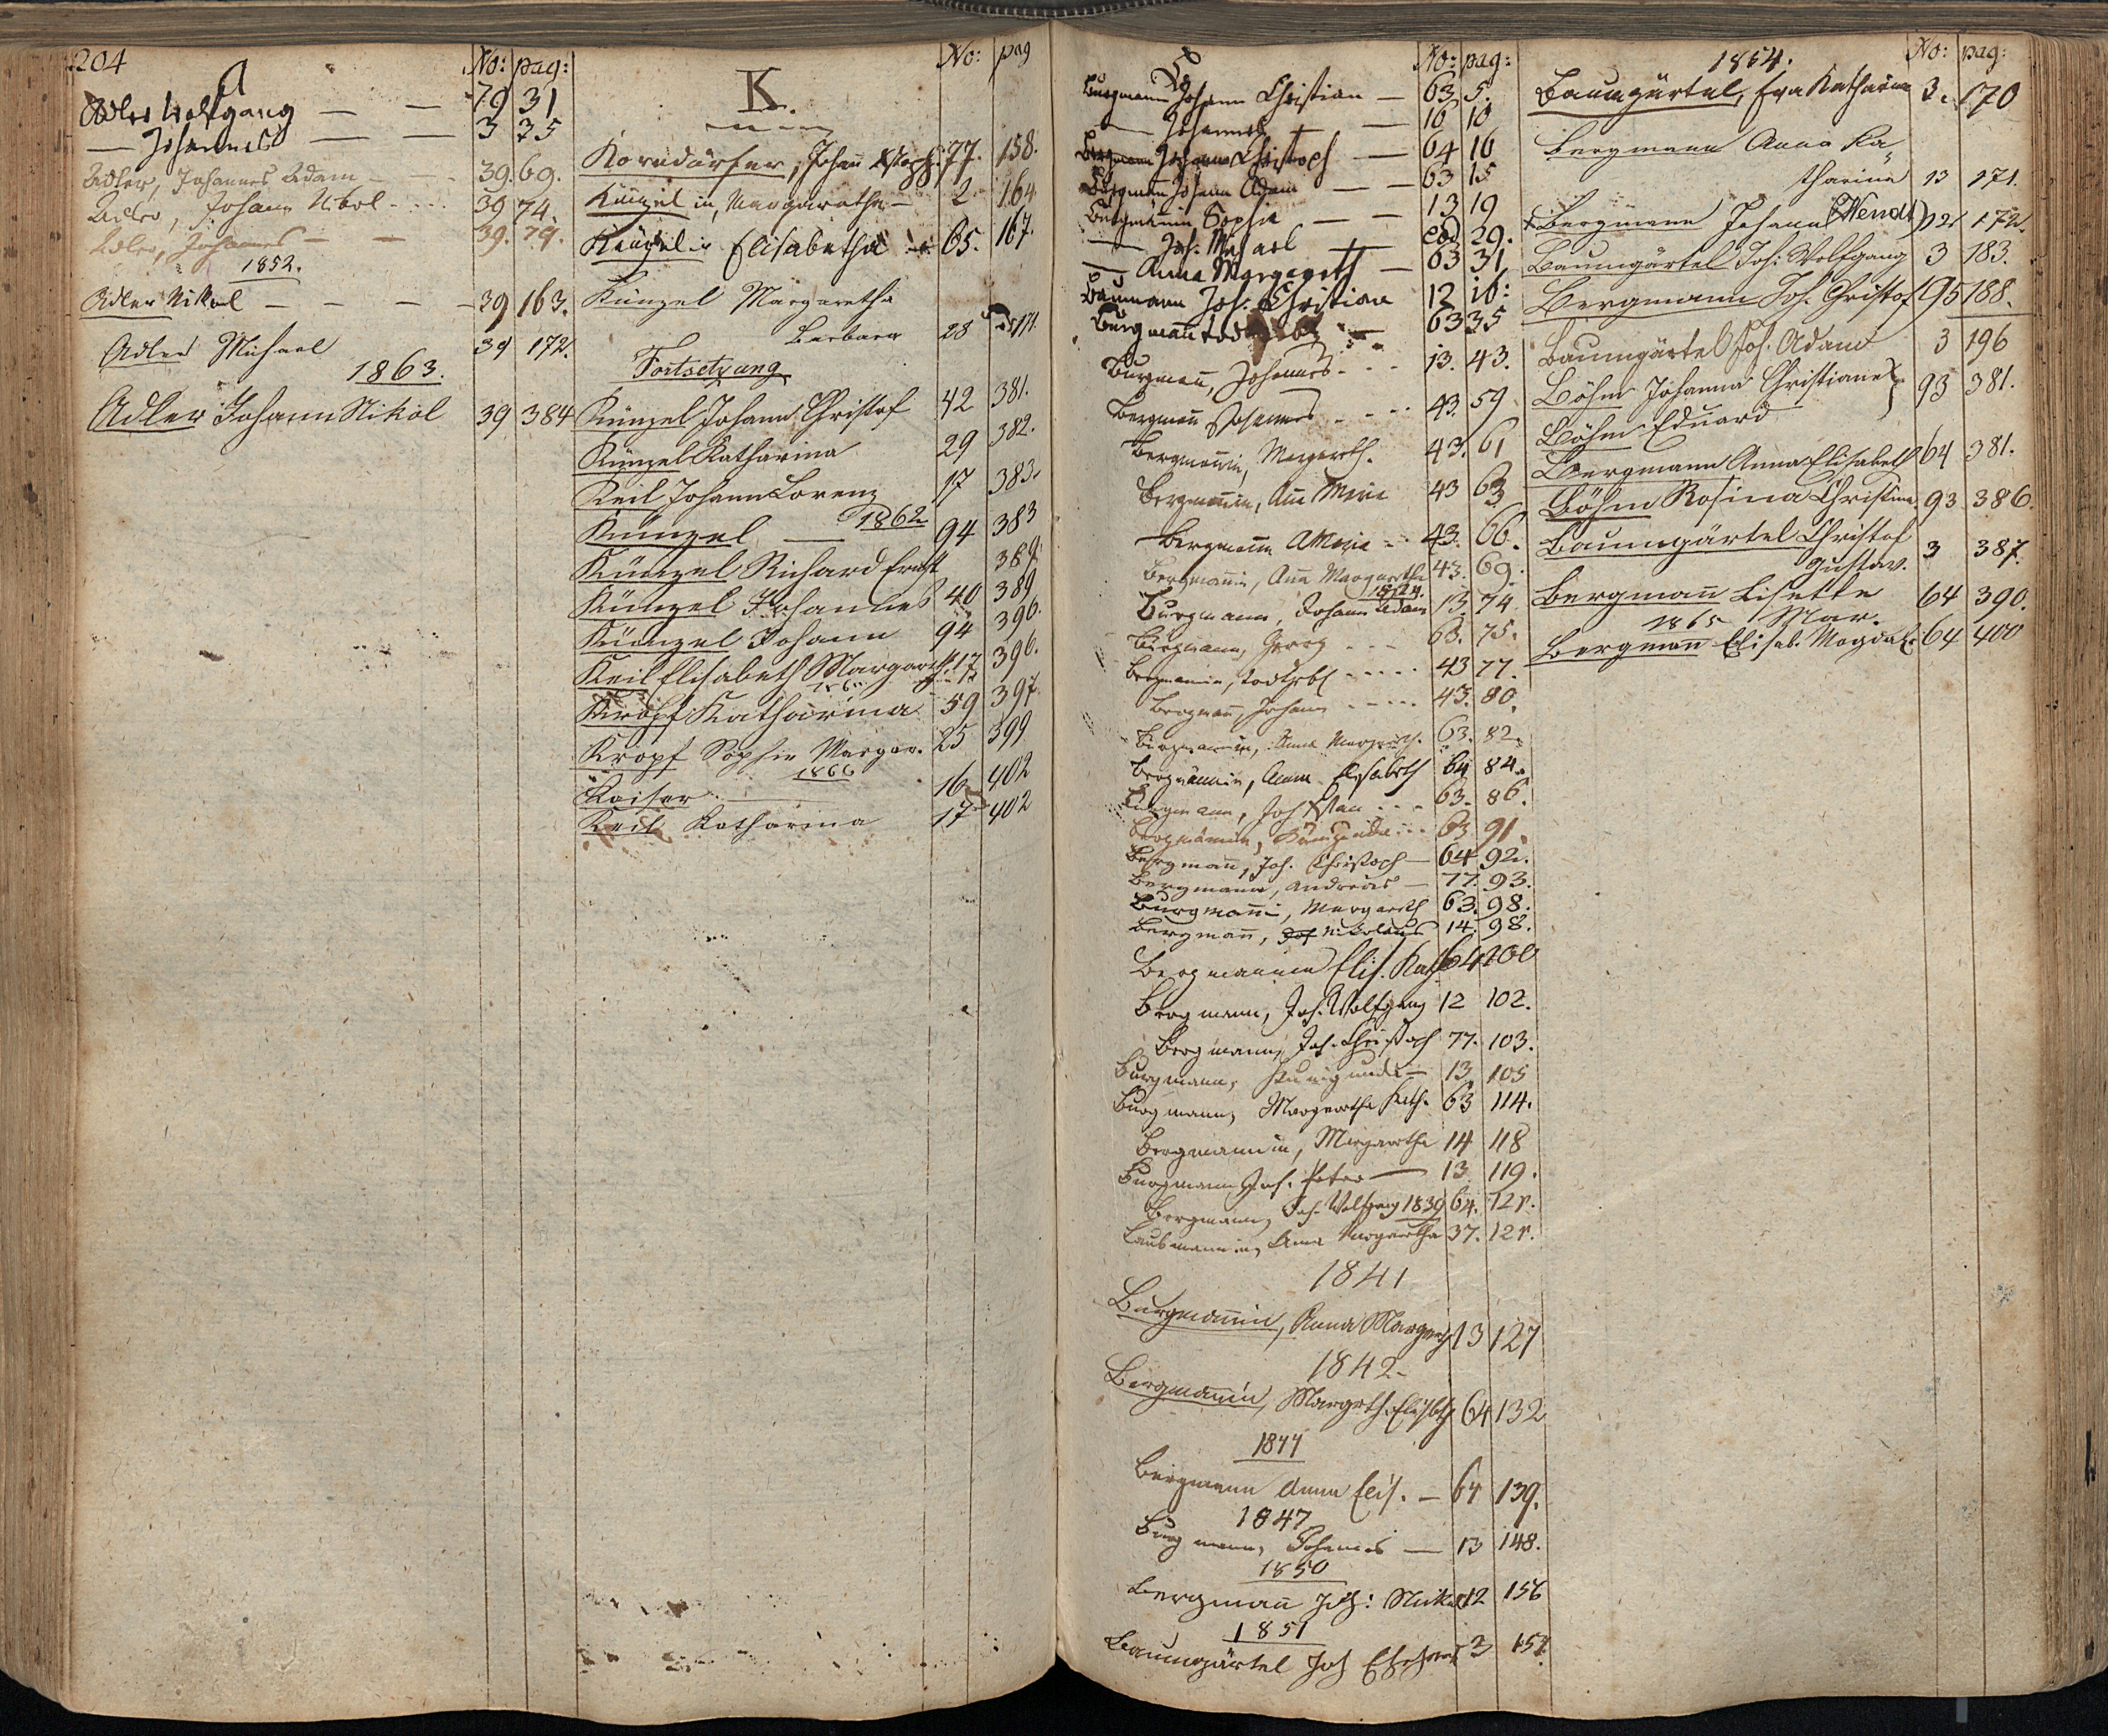 204
A No: pag:
Adler Wolfgang — — 79 31
— Johannes — — 3 35
Adler, Johannes Adam — 39. 69.
Adler, Johann Nkol. 39 74.
Adler, Johannes — — 39. 79.
1852.
Adler Nikol — — — 39 163.
Adler Michael 39 172.
1863.
Adler Johann Nikol 39 384
K. No: pag
Korndörfer, Johann 77. 158.
Künzel in, Margaretha — 2 164
Künzel in Elisabetha 65. 167.
Künzel Margaretha
Barbara 28 171.
Fortsetzung
Künzel Johann Christof 42 381.
Künzel Katharina 29 382.
Keil Johann Lorenz 17 383.
Künzel — 1862 94 383
Künzel Richard Ernst 389.
Künzel Johannes 40 389
Künzel Johann 94 396.
Keil Elisabeth Margareth. 17 396.
Kropf Katharina 59 397.
Kropf Sophie Margar. 25 399
1866
Kaiser — 16 402
Keil Katharina 17 402
B No: pag:
Burgmann Johann Christian — 63 5.
— Johannes — 10 10
Bergmann Johann Christoph — 64 16
Burgmann Johann Adam — — 63 15
Bergmännin Sophie — — 13 19
— Joh. Michael — eod 29.
— Anna Margareth — 63 31
Baumann Joh. Christian 12 16:
Burgmann 63 35
Burgmañ, Johannes 13. 43.
Bergmañ Johannes 43. 59
Bergmañin, Margareth. 43. 61
Bergmañin, Añ Maria 43 63
Bergmañin A Maria 43. 66.
Bergmañin, Aña Margaretha 43. 69.
Burgmann, Johann Adam 13. 74
Burgmann, Georg 63. 75.
Bergmannin, Todtgeb. 43 77.
Bergmañ, Johann 43. 80.
Burgmannin, Anna Margareth. 63. 82.
Bergmännin, Anna Elisabeth 64 84.
Burgmann, Joh 63. 86.
Burgmännin, Kunigunda 63. 91.
Bergmañ, Joh. Christoph — 64 92.
Bergmann, Andreas — 77. 93.
Burgmañ, Margareth 63. 98.
Bergmañ, Joh Nikolaus 14. 98.
Bergmannin Elis. Kath. 64 100
Bergmann, Joh. Wolfgang 12 102.
Bergmann, Joh. Christoph 77. 103.
Burgmann, Kunigunda — 13 105
Burgmann, Margaretha Kath. 63 114.
Bergmannin, Margaretha 14 118
Burgmann Joh. Peter — 13 119.
Bergmann, Joh. Wolfgang 1839 64. 121.
Laubmannin, Anna Margaretha 37. 121.
1841
Burgmañin, Anna Margreth 13 127
1842.
Bergmañin, Margreth. Elisbth 64 132
1844
Bergmann Anna Elis. — 64 139.
1847
Burgmann, Johannes — 13 148.
1850
Bergmañ Joh: Nikol 12 156
1851
Baumgärtel Joh Ehrhardt 3 157.
1854. No: pag:
Baumgärtel, Eva Katharina 3. 170
Bergmann Anna Ka
tharina 13 171.
Bergmann Johann (Wendt) 12 172.
Baumgärtel Joh. Wolfgang 3 183.
Bergmann Joh. Christof 95 188.
Baumgärtel Joh. Adam 3 196
Böhm Johanna Christiane
Böhm Eduard 93 381.
Bergmann Anna Elisabeth 64 381.
Böhm Rosina Christine. 93 386.
Baumgärtel Christof
Gustav. 3 387.
Bergmañ Lisette 64 390.
1865 Mar.
Bergmañ Elisab. Magdal. 64 400